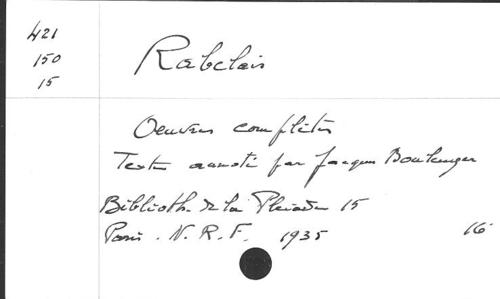 421
150
15
Rabelais
Oeuvres complètes
Texte annoté par Jacques Boulenger
Biblioth. de la Pleiade 15
Paris. N. R. F. 1935 16